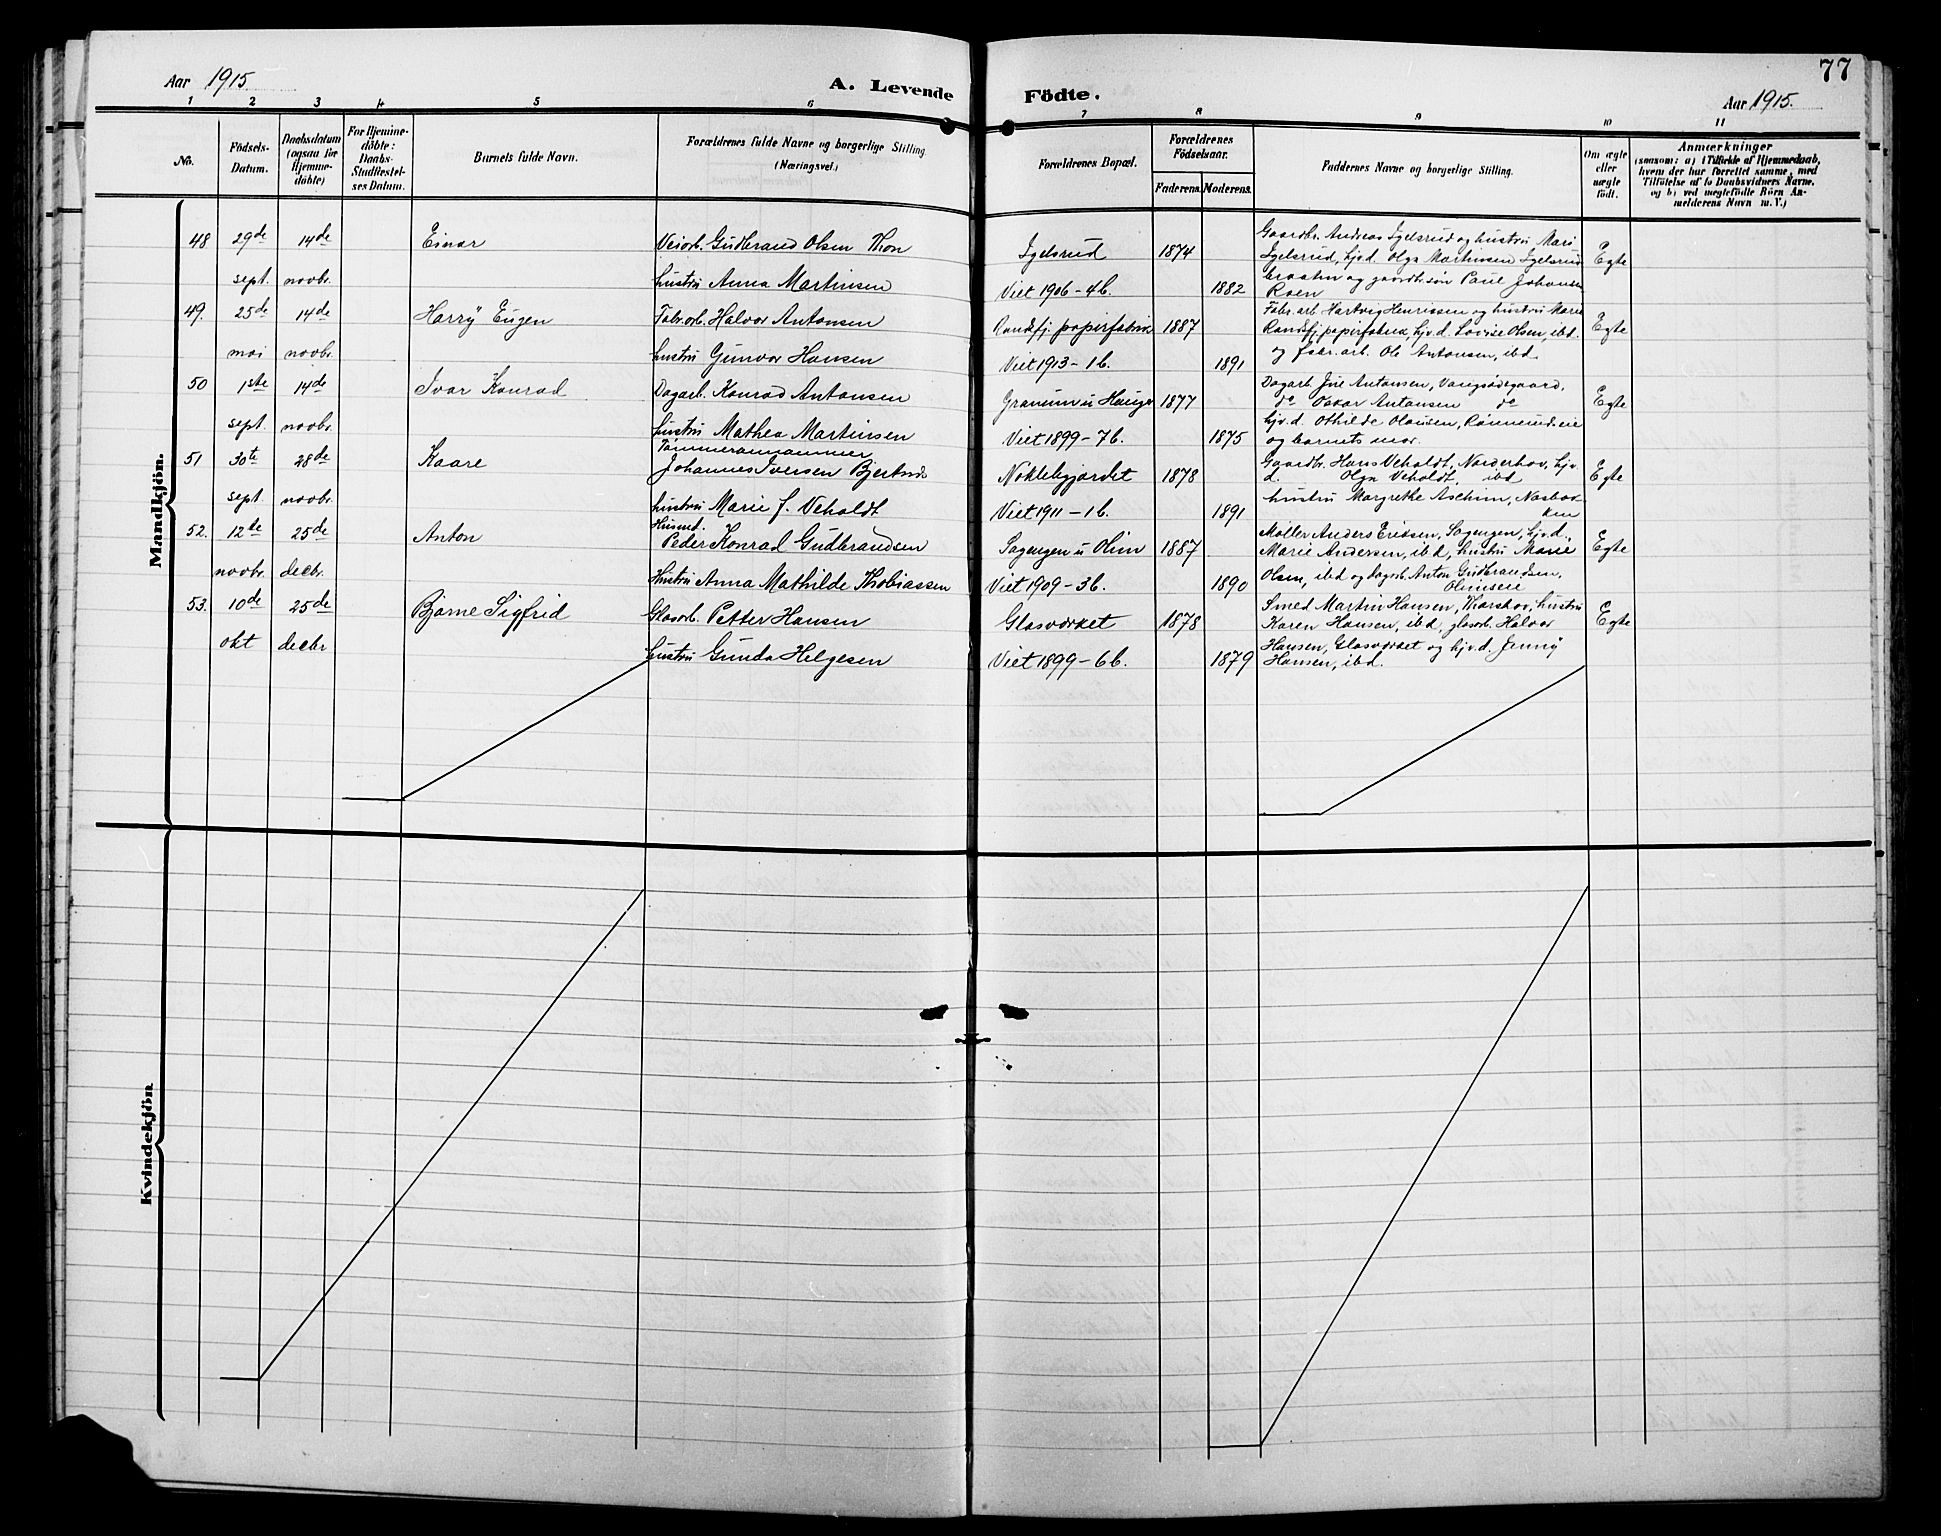 77
Aar 1915.
A. Levende Födte.
Aar 1915.
1 2 3 4 5 6 7 8 9 10 11
No.
Födsels-
Datum.
Daabsdatum
(ogsaa for
Hjemme-
döbte)
For Hjemme-
döbte:
Daabs-
Stadfæstel-
ses Datum.
Barnets fulde Navn.
Forældrenes fulde Navne og borgerlige Stilling.
(Næringsvei.)
Forældrenes Bopæl.
Forældrenes
Födselsaar.
Faderens. Moderens.
Faddernes Navne og borgerlige Stilling.
Om ægte
eller
uægte
födt.
Anmærkninger
(saasom: a) i Tilfælde af Hjemmedaab,
hvem der har forrettet samme, med
Tilföielse af to Daabsvidners Navne,
og b) ved uegtefödte Börn An-
melderens Navn m. V.)
Mandkjön.
48 29de 14de Einar Veiarb. Gudbrand Olsen Thon Igelsrud 1874
sept. novbr. hustru Anna Martinsen Viet 1906 - 4 b. 1882
Gaardbr. Andreas Igelsrud og hustru Mari
Igelsrud, hjvd. Olga Martinsen Igelsrud
braaten og gaardbr.søn Paul Johansen
Roen
Egte
49. 25de 14de Harry Eugen Fabr.arb. Halvor Antonsen Randsfj. papirfabrik 1887
mai novbr. hustru Gunvor Hansen Viet 1913 - 1 b. 1891
Fabr. arb. Hartvig Henriksen og hustru Marie
Randsfj. papirfabrik, hjv.d. Lovise Olsen, ibd.
og fabr. arb. Ole Antonsen, ibd.
Egte
50 1ste 14de Ivar Konrad Dagarb. Konrad Antonsen Granum u Hauger 1877
sept. novbr. hustru Mathea Martinsen Viet 1899 - 7 b. 1875
Dagarb. Jule Antonsen, Vangsødegaard,
do Oskar Antonsen do
hjv.d. Othilde Olausen, Rønnerudeie
og barnets mor.
Egte
51 30te 28de Kaare Tømmerannammer
Johannes Iversen Bjertnæs Noklebyjordet 1878
sept. novbr. hustru Marie J. Veholdt Viet 1911 - 1 b. 1891
Gaardbr. Hans Veholdt, Norderhov, hjv.
d. Olga Veholdt, ibd
hustru Margrethe Aschim, Næsbak
ken
Egte
52. 12te 25de Anton Husmd.
Peder Konrad Gudbrandsen Sagengen u Olim 1887
novbr. decbr. Hustru Anna Mathilde Thobiassen Viet 1909 - 3 b. 1890
Møller Anders Eriksen, Sagengen, hjv.d.,
Marie Andersen, ibd, hustru Marie
Olsen, ibd og dagarb. Anton Gudbrandsen,
Olimseie
Egte
53. 10de 25de Bjarne Sigfrid Glasarb. Petter Hansen Glasværket 1878
okt decbr hustru Gunda Helgesen Viet 1899 - 6 b. 1879
Smed Martin Hansen, Thorshov, hustru
Karen Hansen, ibd, glasarb. Halvor
Hansen, Glasværket og hjv.d. Janny
Hansen, ibd.
Egte
Kvindekjön